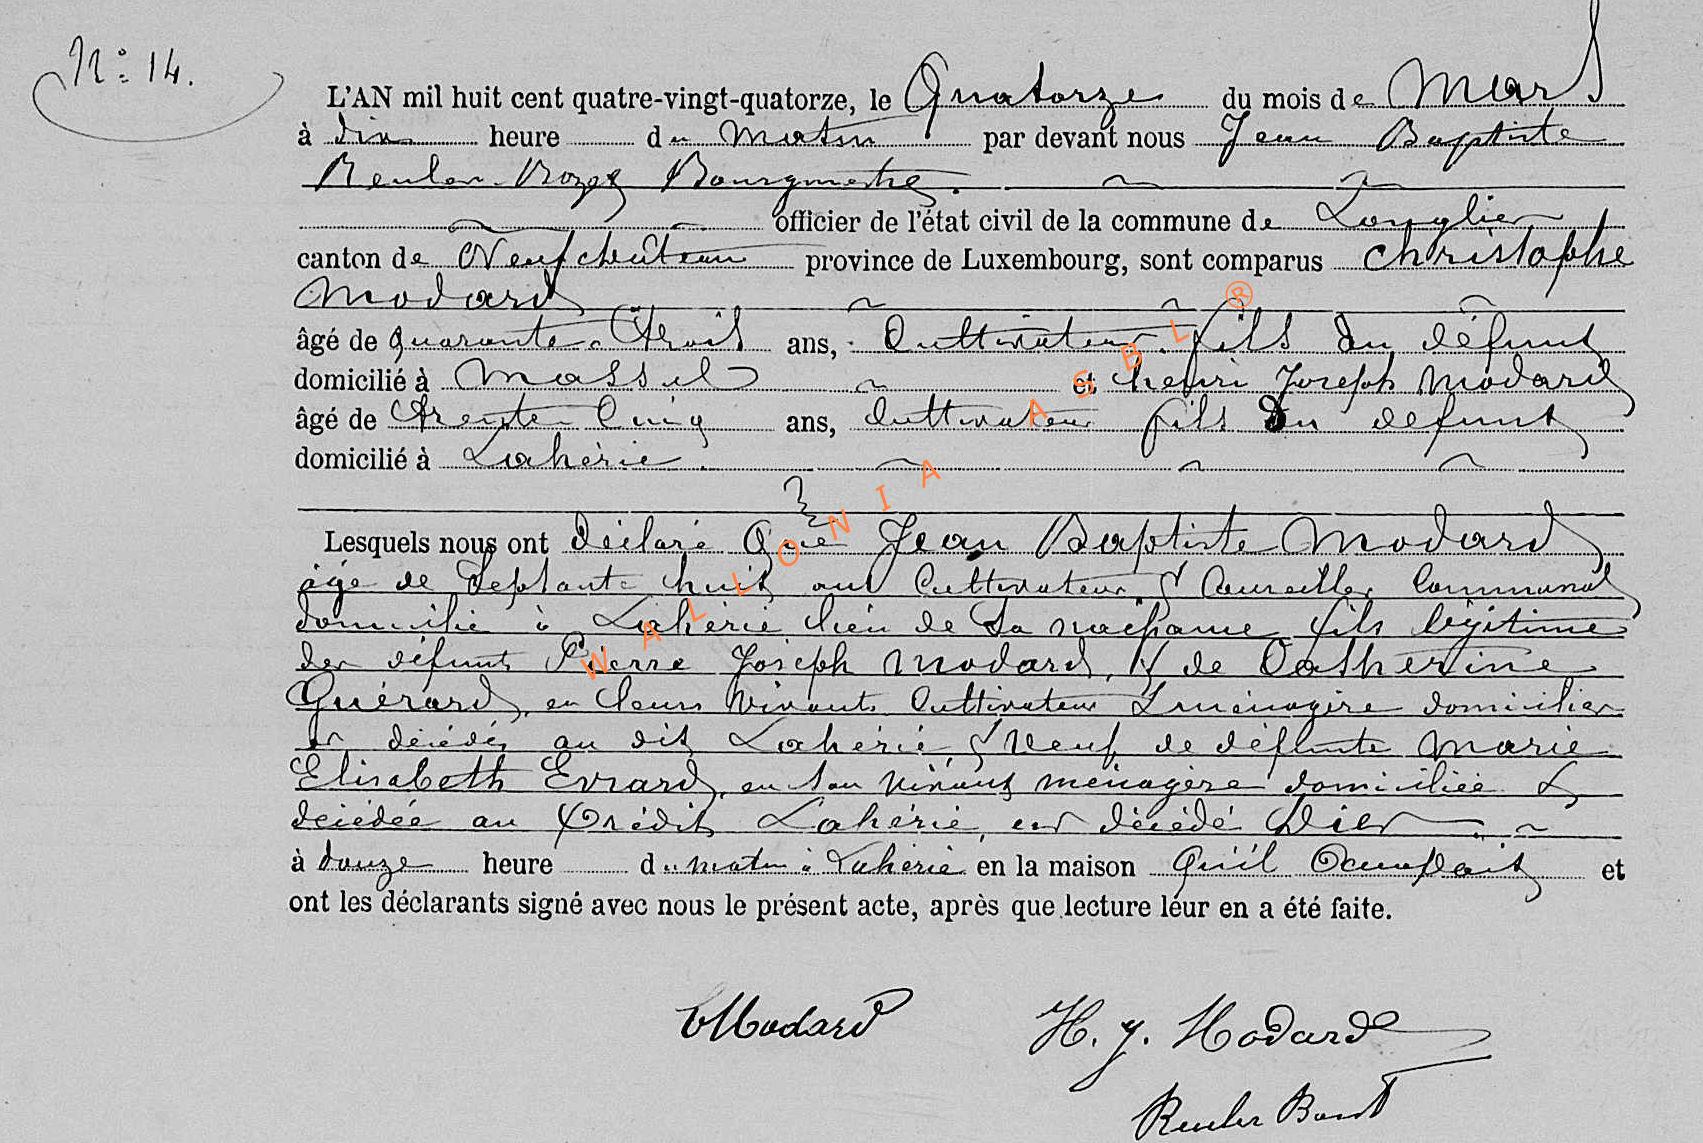 N° 14.
L'AN mil huit cent quatre-vingt-quatorze, le Quatorze du mois de Mars
à dix heure du matin par devant nous Jean Baptiste
Reuler Bozet Bourgmestre.
officier de l'état civil de la commune de Longlier
canton de Neufchâteau province de Luxembourg, sont comparus Christophe
Modard
âgé de quarante trois ans, Cultivateur fils du défunt
domicilié à Massul et henri Joseph Modard
âgé de trente cinq ans, Cultivateur fils du defunt
domicilié à Lahérie.
Lesquels nous ont déclaré Que Jean Baptiste Modard
âgé de Septante huit ans Cultivateur & Conseiller Communal
domicilié à Lahérie lieu de Sa naissance fils légitime
des défunts Pierre Joseph Modard, & de Catherine
Guérard, en leurs vivants Cultivateur & ménagère domiciliés
et décédés au dit Lahérie & veuf de défunte Marie
Elisabeth Evrard, en son vivant ménagère domiciliée &
décédée au prédit Lahérie, est décédé hier
à douze heure du matin à Lahérie en la maison Qu'il Occupait et
ont les déclarants signé avec nous le présent acte, après que lecture leur en a été faite.
C Modard
H. J. Modard
Reuler
WALLONIA ASBL ®